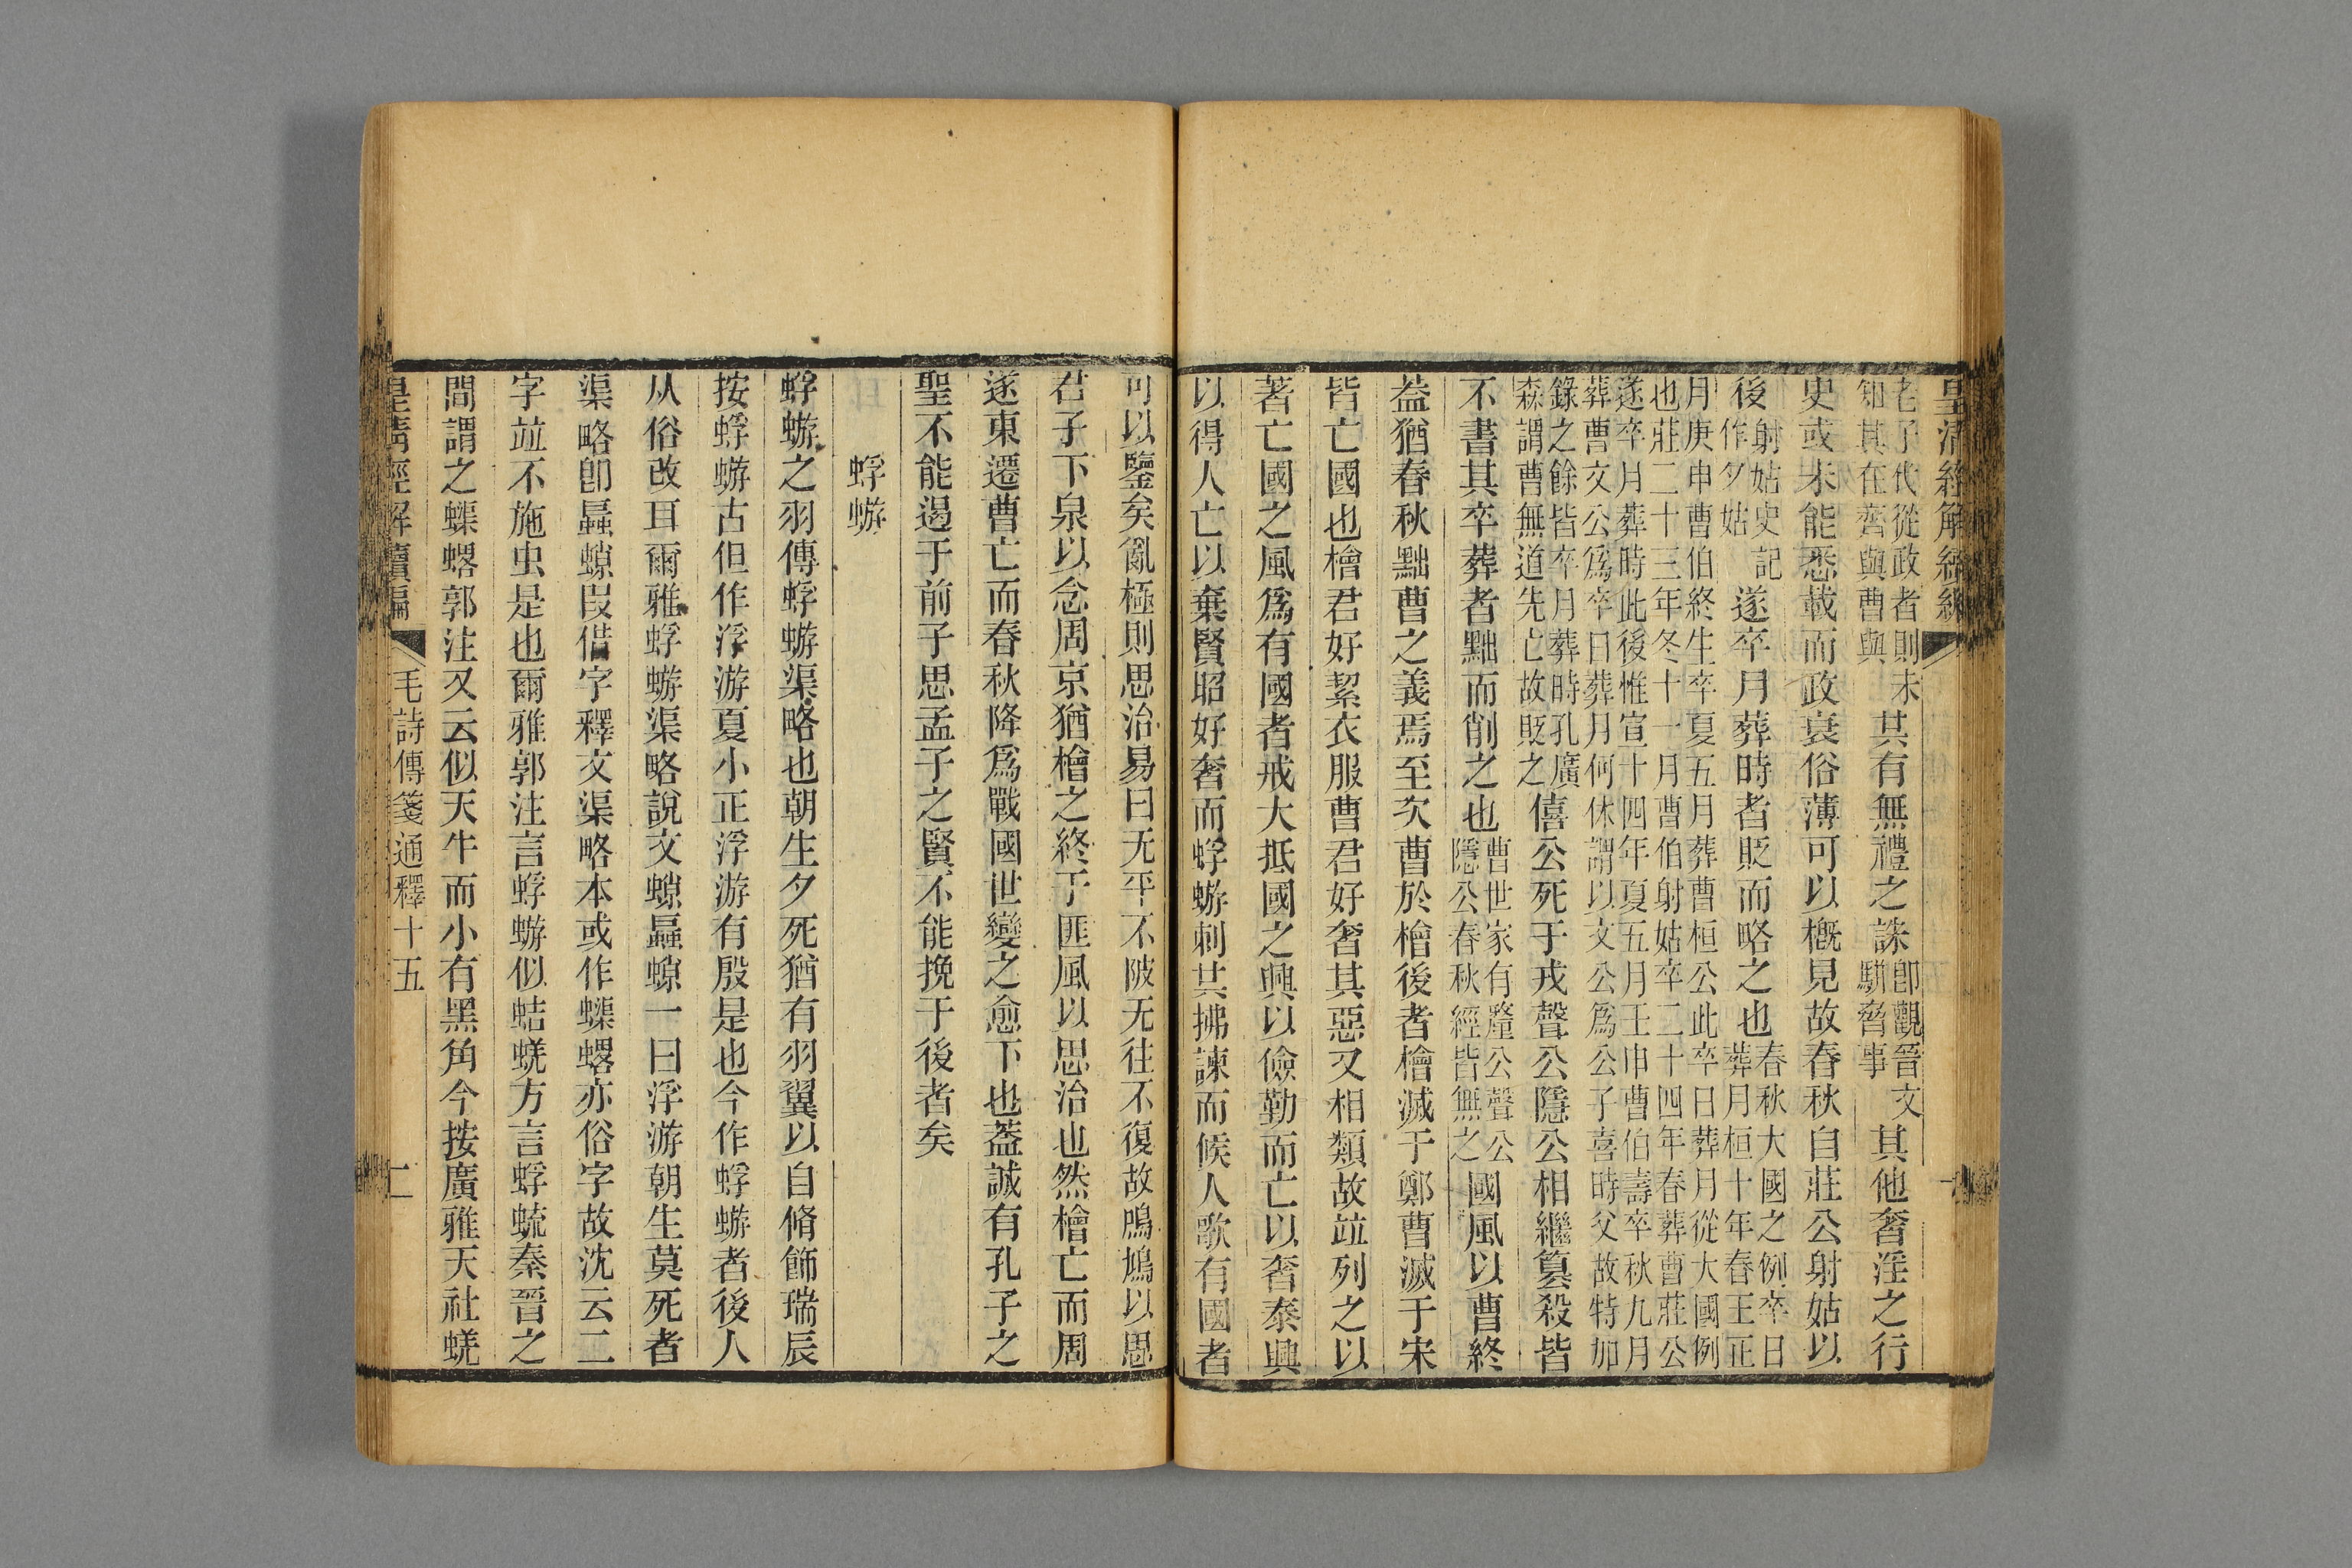 老子代從政者則未
知其在莒與曹與
其有無禮之誅
卽觀晉文
駢脅事
其他奢淫之行
史或未能悉載而政衰俗薄可以概見故春秋自莊公射姑以
後
射姑史記
作夕姑
遂卒月葬時者貶而略之也
春秋大國之例卒日
葬月桓十年春王正
月庚申曹伯終生卒夏五月葬曹桓公此卒日葬月從大國例
也莊二十三年冬十一月曹伯射姑卒二十四年春葬曹莊公
遂卒月葬時此後惟宣十四年夏五月壬申曹伯壽卒秋九月
葬曹文公爲卒日葬月何休謂以文公爲公子喜時父故特加
錄之餘皆卒月葬時孔廣
森謂曹無道先亡故貶之
僖公死于戎聲公隱公相繼篡殺皆
不書其卒葬者黜而削之也
曹世家有釐公聲公
隱公春秋經皆無之
國風以曹終
葢猶春秋黜曹之義焉至次曹於檜後者檜滅于鄭曹滅于宋
皆亡國也檜君好絜衣服曹君好奢其惡又相類故竝列之以
著亡國之風爲有國者戒大抵國之興以儉勤而亡以奢泰興
以得人亡以棄賢昭好奢而蜉蝣刺共拂諫而候人歌有國者
可以鑒矣亂極則思治易曰无平不陂无往不復故鳲鳩以思
君子下泉以念周京猶檜之終于匪風以思治也然檜亡而周
遂東遷曹亡而春秋降爲戰國世變之愈下也葢誠有孔子之
聖不能遏于前子思孟子之賢不能挽于後者矣
蜉蝣
蜉蝣之羽傳蜉蝣渠略也朝生夕死猶有羽翼以自脩飾瑞辰
按蜉蝣古但作浮游夏小正浮游有殷是也今作蜉蝣者後人
从俗改耳爾雅蜉蝣渠略說文螶蟁螶一曰浮游朝生莫死者
渠略卽蟁螶叚借字釋文渠略本或作蟝䗉亦俗字故沈云二
字竝不施虫是也爾雅郭注言蜉蝣似蛣蜣方言蜉蝣秦晉之
間謂之蟝䗉郭注又云似天牛而小有黑角今按廣雅天社蜣
皇清經解續編
毛詩傳箋通釋十五
二